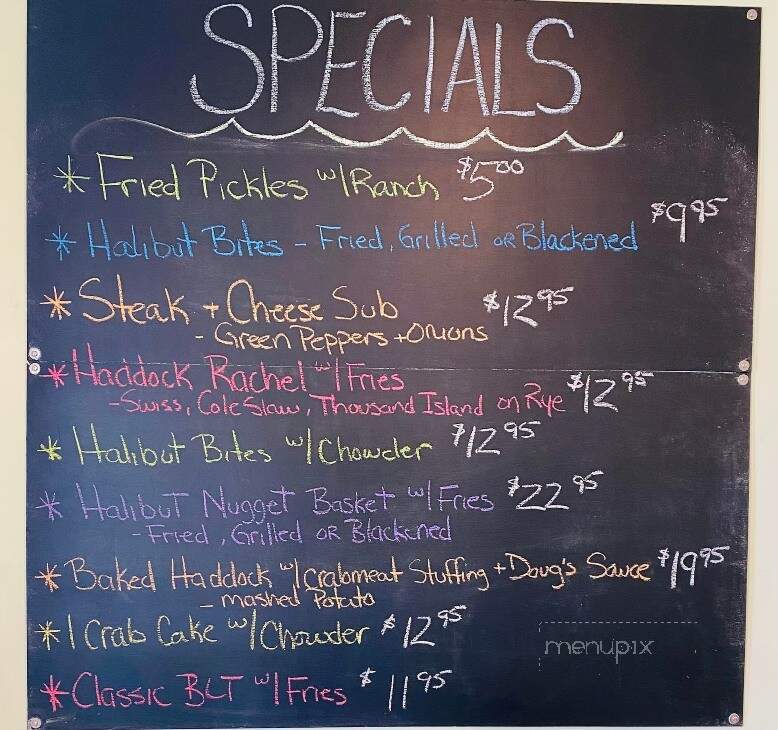 SPECIALS
* Fried Pickles w/Ranch $5.00
* Halibut Bites - Fried, Grilled OR Blackened $9.95
* Steak + Cheese Sub $12.95
- Green Peppers + Onions
* Haddock Rachel w/ Fries
- Swiss, Cole Slaw, Thousand Island on Rye $12.95
* Halibut Bites w/ Chowder $12.95
* Halibut Nugget Basket w/ Fries $22.95
- Fried, Grilled OR Blackened
* Baked Haddock w/ Crabmeat Stuffing + Doug's Sauce $19.95
- mashed Potato
* 1 Crab Cake w/ Chowder $12.95
menupix
* Classic BLT w/ Fries $11.95